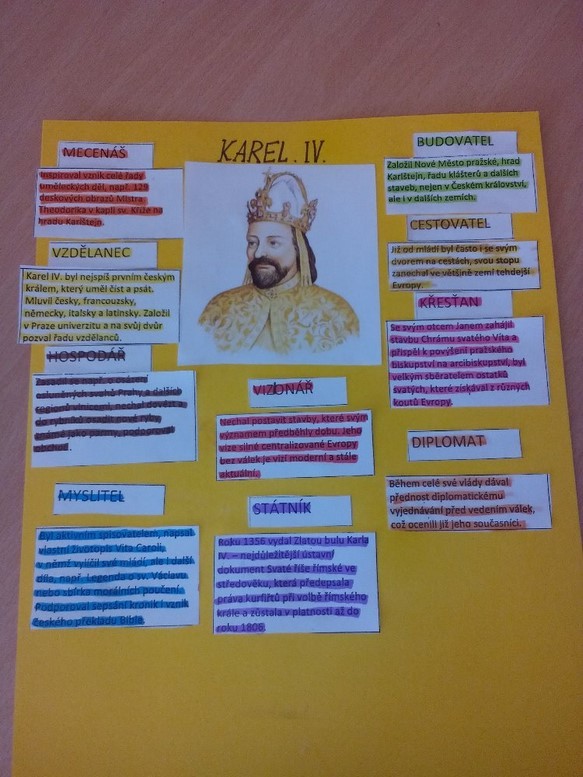 KAREL. IV.
MECENÁŠ
Inspiroval vznik celé řady
uměleckých děl, např. 129
deskových obrazů Mistra
Theodorika v kapli sv. Kříže na
hradu Karlštejn.
VZDĚLANEC
Karel IV. byl nejspíš prvním českým
králem, který uměl číst a psát.
Mluvil česky, francouzsky,
německy, italsky a latinsky. Založil
v Praze univerzitu a na svůj dvůr
pozval řadu vzdělanců.
HOSPODÁŘ
Zasadil se např. o osázení
osluněných svahů Prahy a dalších
regionů vinicemi, nechal dovézt a
do rybníků osadit nové ryby,
známé jako
obchod.
MYSLITEL
Byl aktivním spisovatelem, napsal
vlastní životopis Vita Caroli,
v němž vylíčil své mládí, ale i další
díla, např. Legenda o sv. Václavu
nebo sbírka morálních poučení.
Podporoval sepsání kronik i vznik
českého překladu Bible.
VIZIONÁŘ
Nechal postavit stavby, které svým
významem předběhly dobu. Jeho
vize silné centralizované Evropy
bez válek je vizí moderní a stále
aktuální.
STÁTNÍK
Roku 1356 vydal Zlatou bulu Karla
IV. – nejdůležitější ústavní
dokument Svaté říše římské ve
středověku, která předepsala
práva kurfiřtů při volbě římského
krále a zůstala v platnosti až do
roku 1806.
BUDOVATEL
Založil Nové Město pražské, hrad
Karlštejn, řadu klášterů a dalších
staveb, nejen v Českém království,
ale i v dalších zemích.
CESTOVATEL
Již od mládí byl často i se svým
dvorem na cestách, svou stopu
zanechal ve většině zemí tehdejší
Evropy.
KŘESŤAN
Se svým otcem Janem zahájil
stavbu Chrámu svatého Víta a
přispěl k povýšení pražského
biskupství na arcibiskupství, byl
velkým sběratelem ostatků
svatých, které získával z různých
koutů Evropy.
DIPLOMAT
Během celé své vlády dával
přednost diplomatickému
vyjednávání před vedením válek,
což ocenili již jeho současníci.